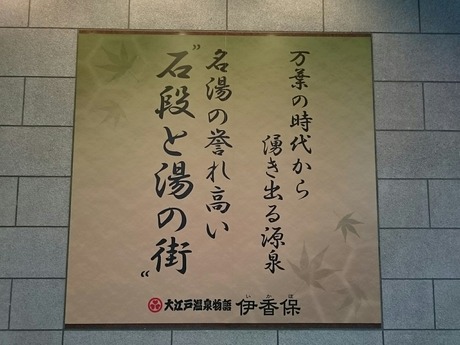 万葉の時代から
湧き出る源泉
名湯の誉れ高い
"石段と湯の街"
大江戸温泉物語 伊香保
いかほ